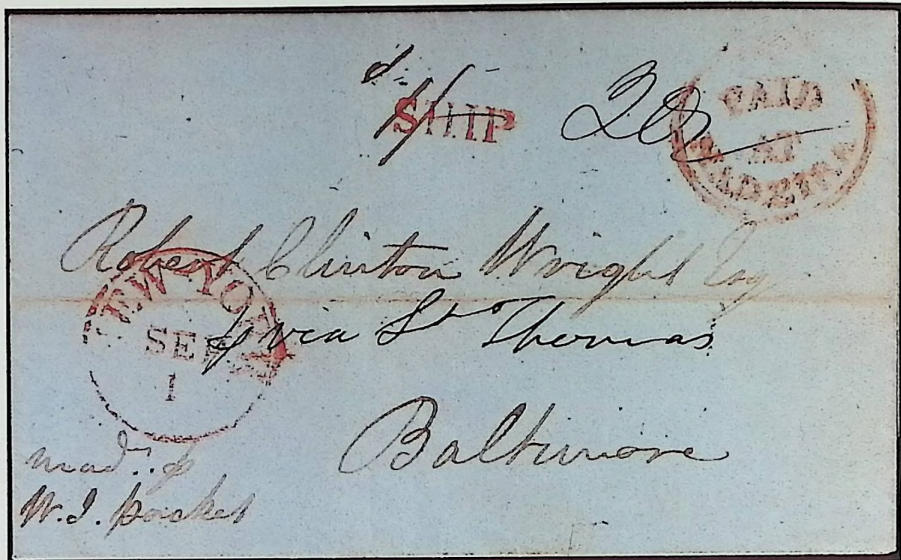 1/
SHIP
20
PAID
AT
Robert Clinton Wright Esq
via St. Thomas
Baltimore
NEW YORK
SEP
1
W.I. packet